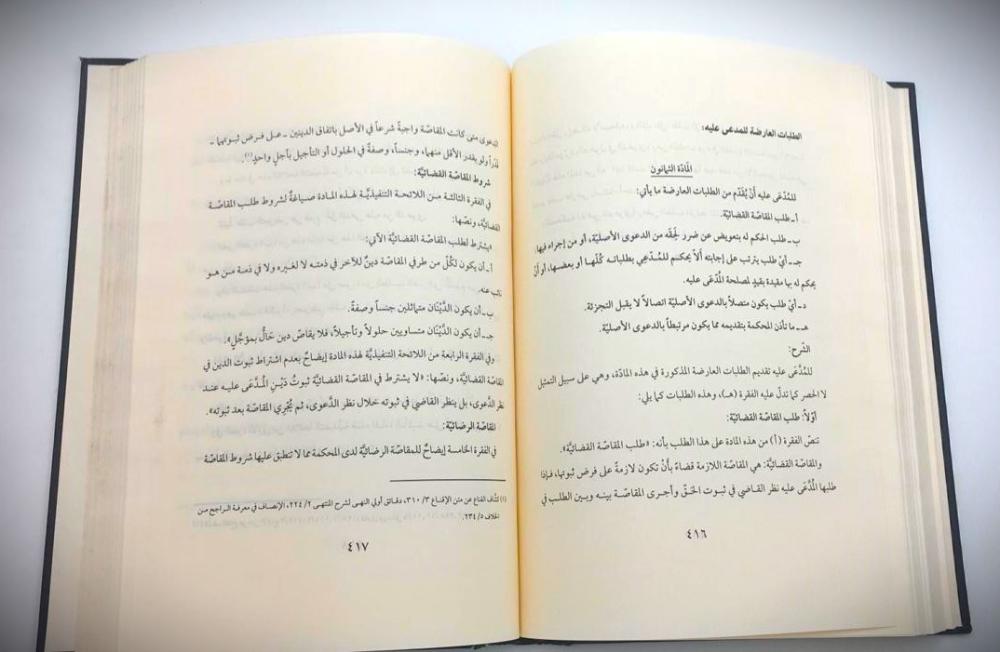 الطلبات العارضة للمدعى عليه:
المادّة الثمانون
للمُدَّعَى عليه أنْ يُقَدِّم من الطلبات العارضة ما يأتي:
أ ـ طلب المقاصّة القضائيّة.
ب ـ طلب الحكم له بتعويض عن ضرر لَحِقَه من الدعوى الأصليّة، أو من إجراء فيها.
جـ ـ أيّ طلب يترتب على إجابته ألاّ يحكم للمُدَّعِي بطلباته كُلِّها أو بعضها، أو أنْ
يحكم له بها مقيدة بقيدٍ لمصلحة المُدَّعَى عليه.
د ـ أيّ طلب يكون متصلاً بالدعوى الأصليّة اتصالاً لا يقبل التجزئة.
هـ ـ ما تأذن المحكمة بتقديمه مما يكون مرتبطاً بالدعوى الأصليّة.
الشّرح:
للمُدَّعَى عليه تقديم الطلبات العارضة المذكورة في هذه المادّة، وهي على سبيل التمثيل
لا الحصر كما تدلّ عليه الفقرة (هـ)، وهذه الطلبات كما يلي:
أوّلاً: طلب المقاصّة القضائيّة:
تنصّ الفقرة (أ) من هذه المادة على هذا الطلب بأنه: «طلب المقاصّة القضائيّة».
والمقاصّة القضائيّة: هي المقاصّة اللازمة قضاءً بأنْ تكون لازمةً على فرض ثبوتها، فإذا
طلبها المُدَّعَى عليه نظر القاضي في ثبوت الحقّ وأجرى المقاصّة بينه وبين الطلب في
٤١٦
الدعوى متى كانت المقاصّة واجبةً شرعاً في الأصل باتفاق الدينين ـ على فرض ثبوتهما ـ
قدْراً ولو بقدر الأقل منهما، وجنساً، وصفةً في الحلول أو التأجيل بأجلٍ واحدٍ(١).
شروط المقاصّة القضائيّة:
في الفقرة الثالثة من اللائحة التنفيذيّة لهذه المادة صياغةٌ لشروط طلب المقاصّة
القضائيّة، ونصّها:
«يشترط لطلب المقاصّة القضائيّة الآتي:
أ ـ أن يكون لكُلٍّ من طرفي المقاصّة دينٌ للآخر في ذمته لا لغيره ولا في ذمة من هو
نائب عنه.
ب ـ أن يكون الدَّيْنَان متماثلين جنساً وصفةً.
جـ ـ أن يكون الدَّيْنَان متساويين حلولاً وتأجيلاً، فلا يقاصّ دين حَالٌّ بمؤجَّلٍ».
وفي الفقرة الرابعة من اللائحة التنفيذيّة لهذه المادة إيضاحٌ بعدم اشتراط ثبوت الدين في
المقاصّة القضائيّة، ونصّها: «لا يشترط في المقاصّة القضائيّة ثبوتُ دَيْنِ المُدَّعَى عليه عند
نظر الدَّعوى، بل ينظر القاضي في ثبوته خلال نظر الدَّعوى، ثم يُجْرِي المقاصّة بعد ثبوته».
المقاصّة الرضائيّة:
في الفقرة الخامسة إيضاحٌ للمقاصّة الرضائيّة لدى المحكمة مما لا تنطبق عليها شروط المقاصّة
(١) كشّاف القناع عن متن الإقناع ٣/ ٣١٠، دقائق أولي النهى لشرح المنتهى ٢/ ٢٢٤، الإنصاف في معرفة الراجح من
الخلاف ٥/ ٢٣٤.
٤١٧